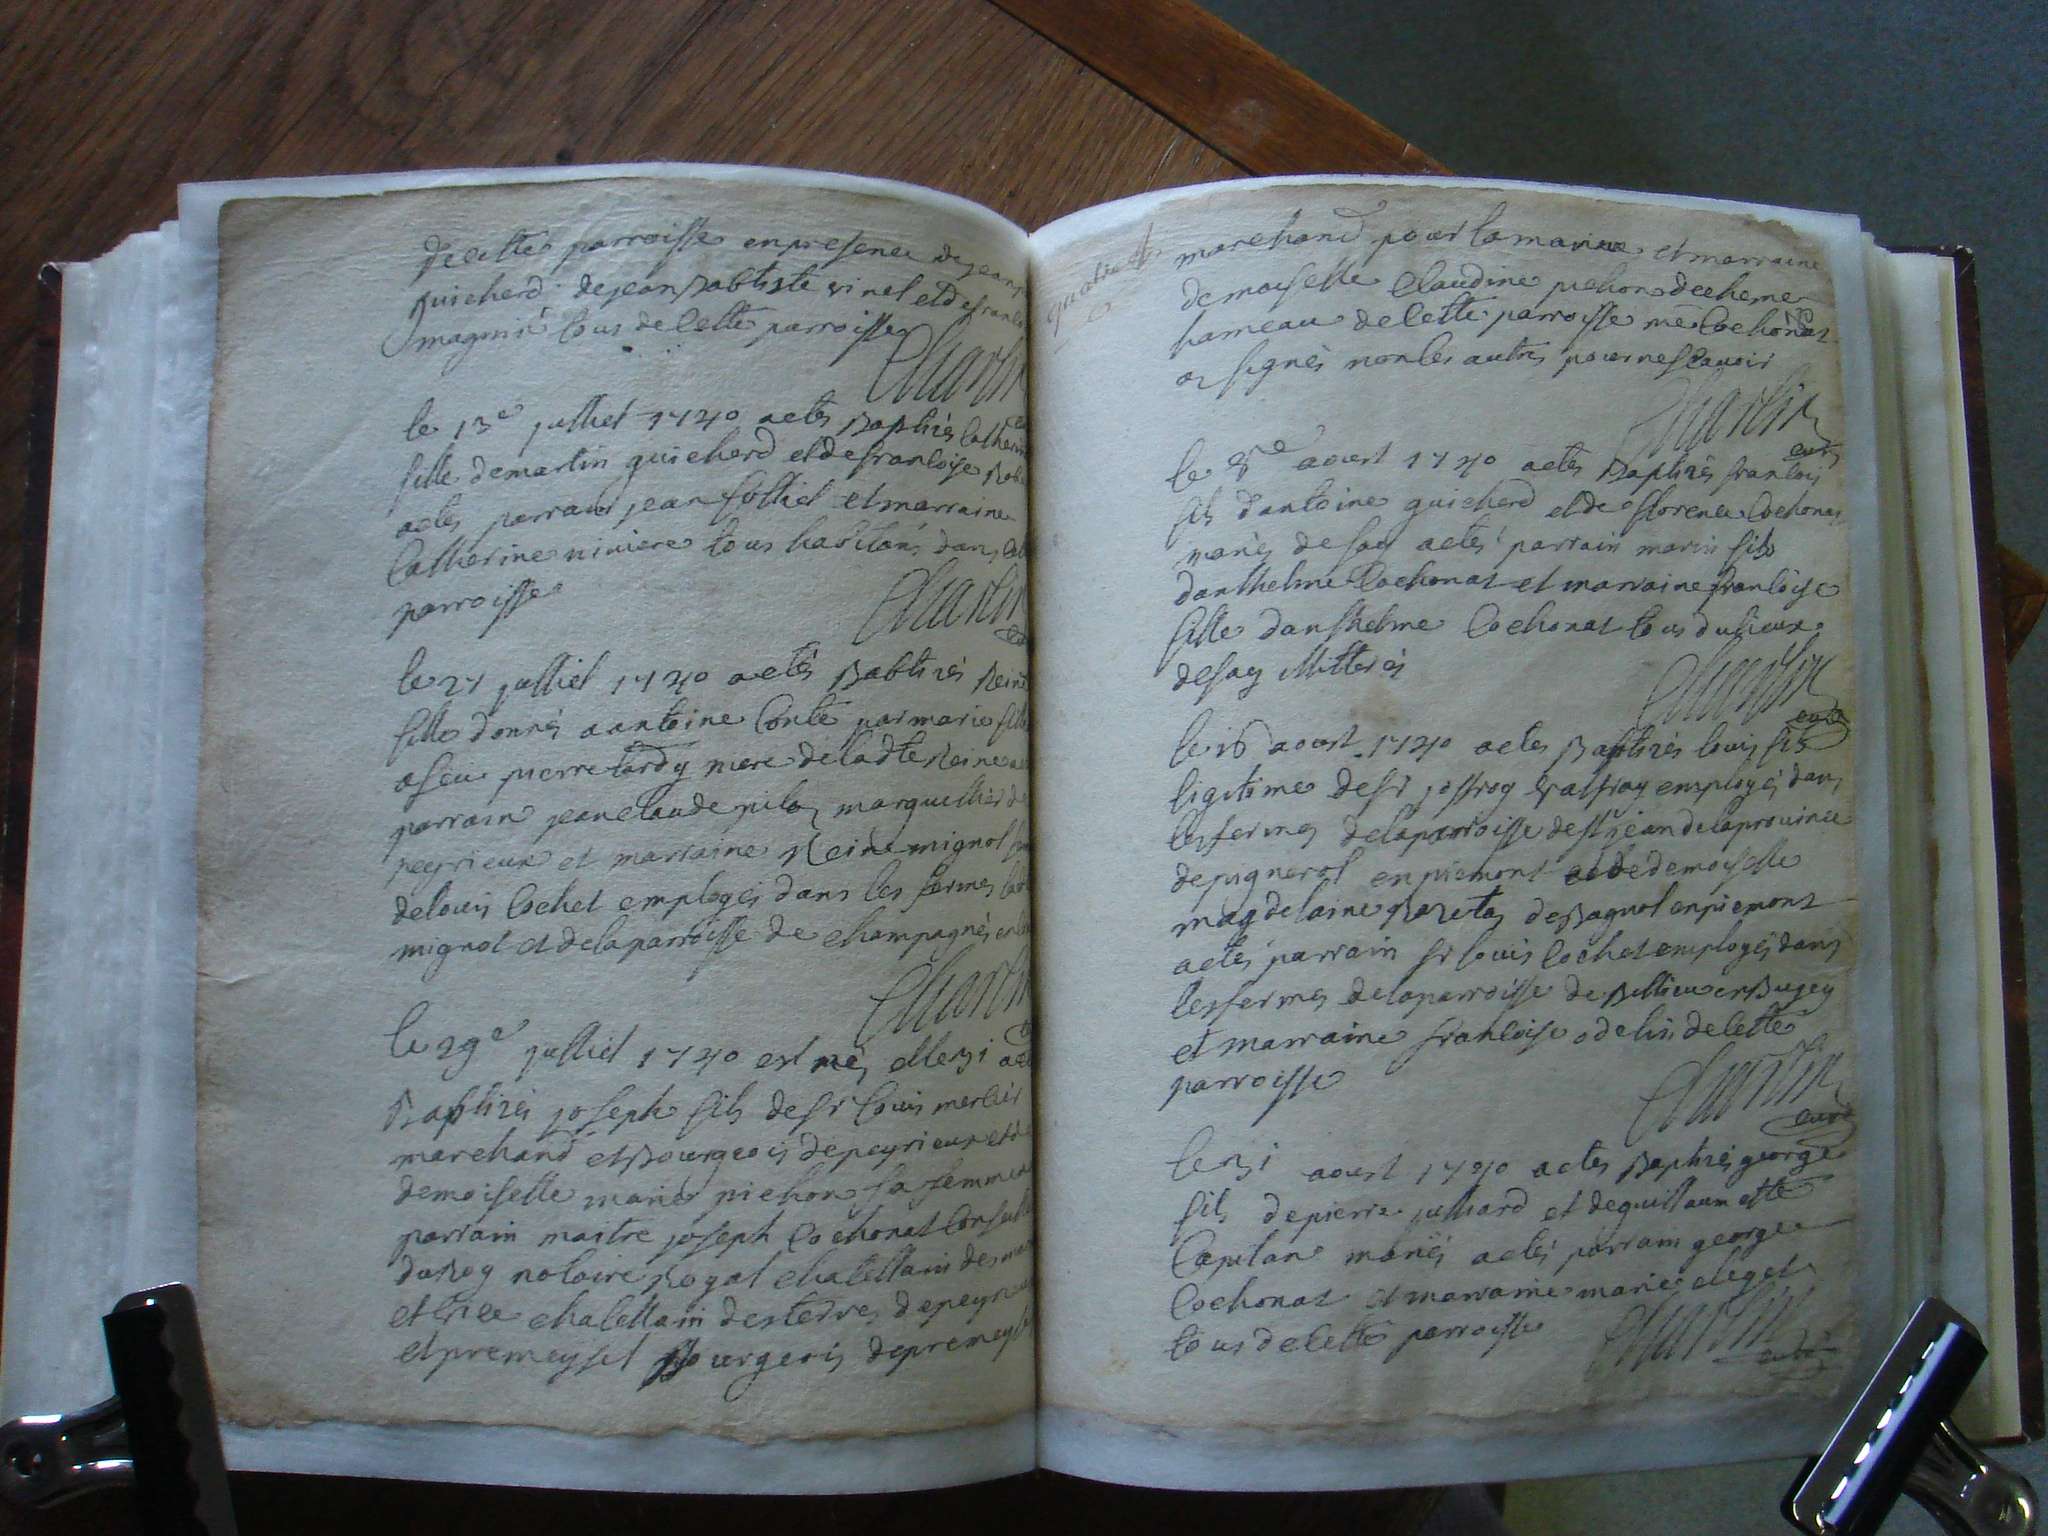 de cette parroisse en presence de jean
guicherd de jean babtiste vinel et de franco
magnin tous de cette parroisse
Charlin
le 13e julliet 1740 a etes baptises Catherin
fille de martin guicherd et de francoise
a etes parrain jean folliet et marraine
Catherine niniere tous habitans dans
parroisse
Charlin
le 27 julliet 1740 a etés babtises Reine
fille donnés a antoine Conte par marie fille
a feu pierre tardy mere de ladte Reine
parrain jean claude pilos marguillier de
peyrieux et marraine Reine mignot
de louis Cochet employes dans les fermes
mignot et de la parroisse de champagnes
Charlin
le 29e julliet 1740 est nés et le 31 a eté
baptises joseph fils de sr louis mercier
marchand et bourgeois de peyrieux et de
demoiselle marie pichon sa femme
parrain maitre joseph Cochonat Conseille
du Roy notoire Royal chatellain des
et chatellain des terres de peyrieu
et premeyset bourgeois de premeyse
marchand pour la marine et marraine
demoiselle Claudine pichon de cheme
hameau de cette parroisse me Cochonat
a signés non les autres pour ne scavoir
Charlin
curé
le 8e aoust 1740 a etes baptises francois
fils dantoine guicherd et de florence Cochonat
mariés de fay a etés parrain marin fils
danthelme Cochonat et marraine francoise
fille danthelme Cochonat tous du lieux
de fay illitterés
Charlin
curé
le 16 aoust 1740 a etes baptises louis fils
ligitime de sr joffroy employes dans
les fermes de la parroisse de st jean de la province
de pignerol en piemont et de demoiselle
magdelaine de Bagnol en piemont
a etés parrain sr louis Cochet employes dans
les fermes de la parroisse de bellieu en Bugey
et marraine francoise odelin de cette
parroisse
Charlin
curé
le 31 aoust 1740 a etes baptises george
fils de pierre julliard et de guillaumette
Capitan mariés a etés parrain george
Cochonat et marraine marie cleget
tous de cette parroisse
Charlin
curé